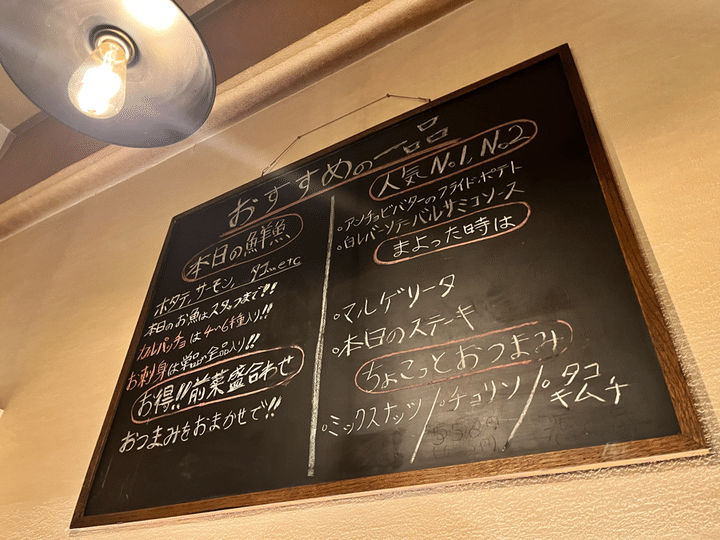 おすすめの一品
本日の鮮魚
ホタテ、サーモン、タコ...etc
本日のお魚はスタッフまで!!
カルパッチョは4~6種入り!!
お刺身は単品 全品入り!!
お得!!前菜盛合わせ
おつまみをおまかせで!!
人気 No.1, No.2
・アンチョビバターのフライドポテト
・白レバーソテーバルサミコソース
まよった時は
・マルゲリータ
・本日のステーキ
ちょこっとおつまみ
・ミックスナッツ/・チョリソ/・タコキムチ